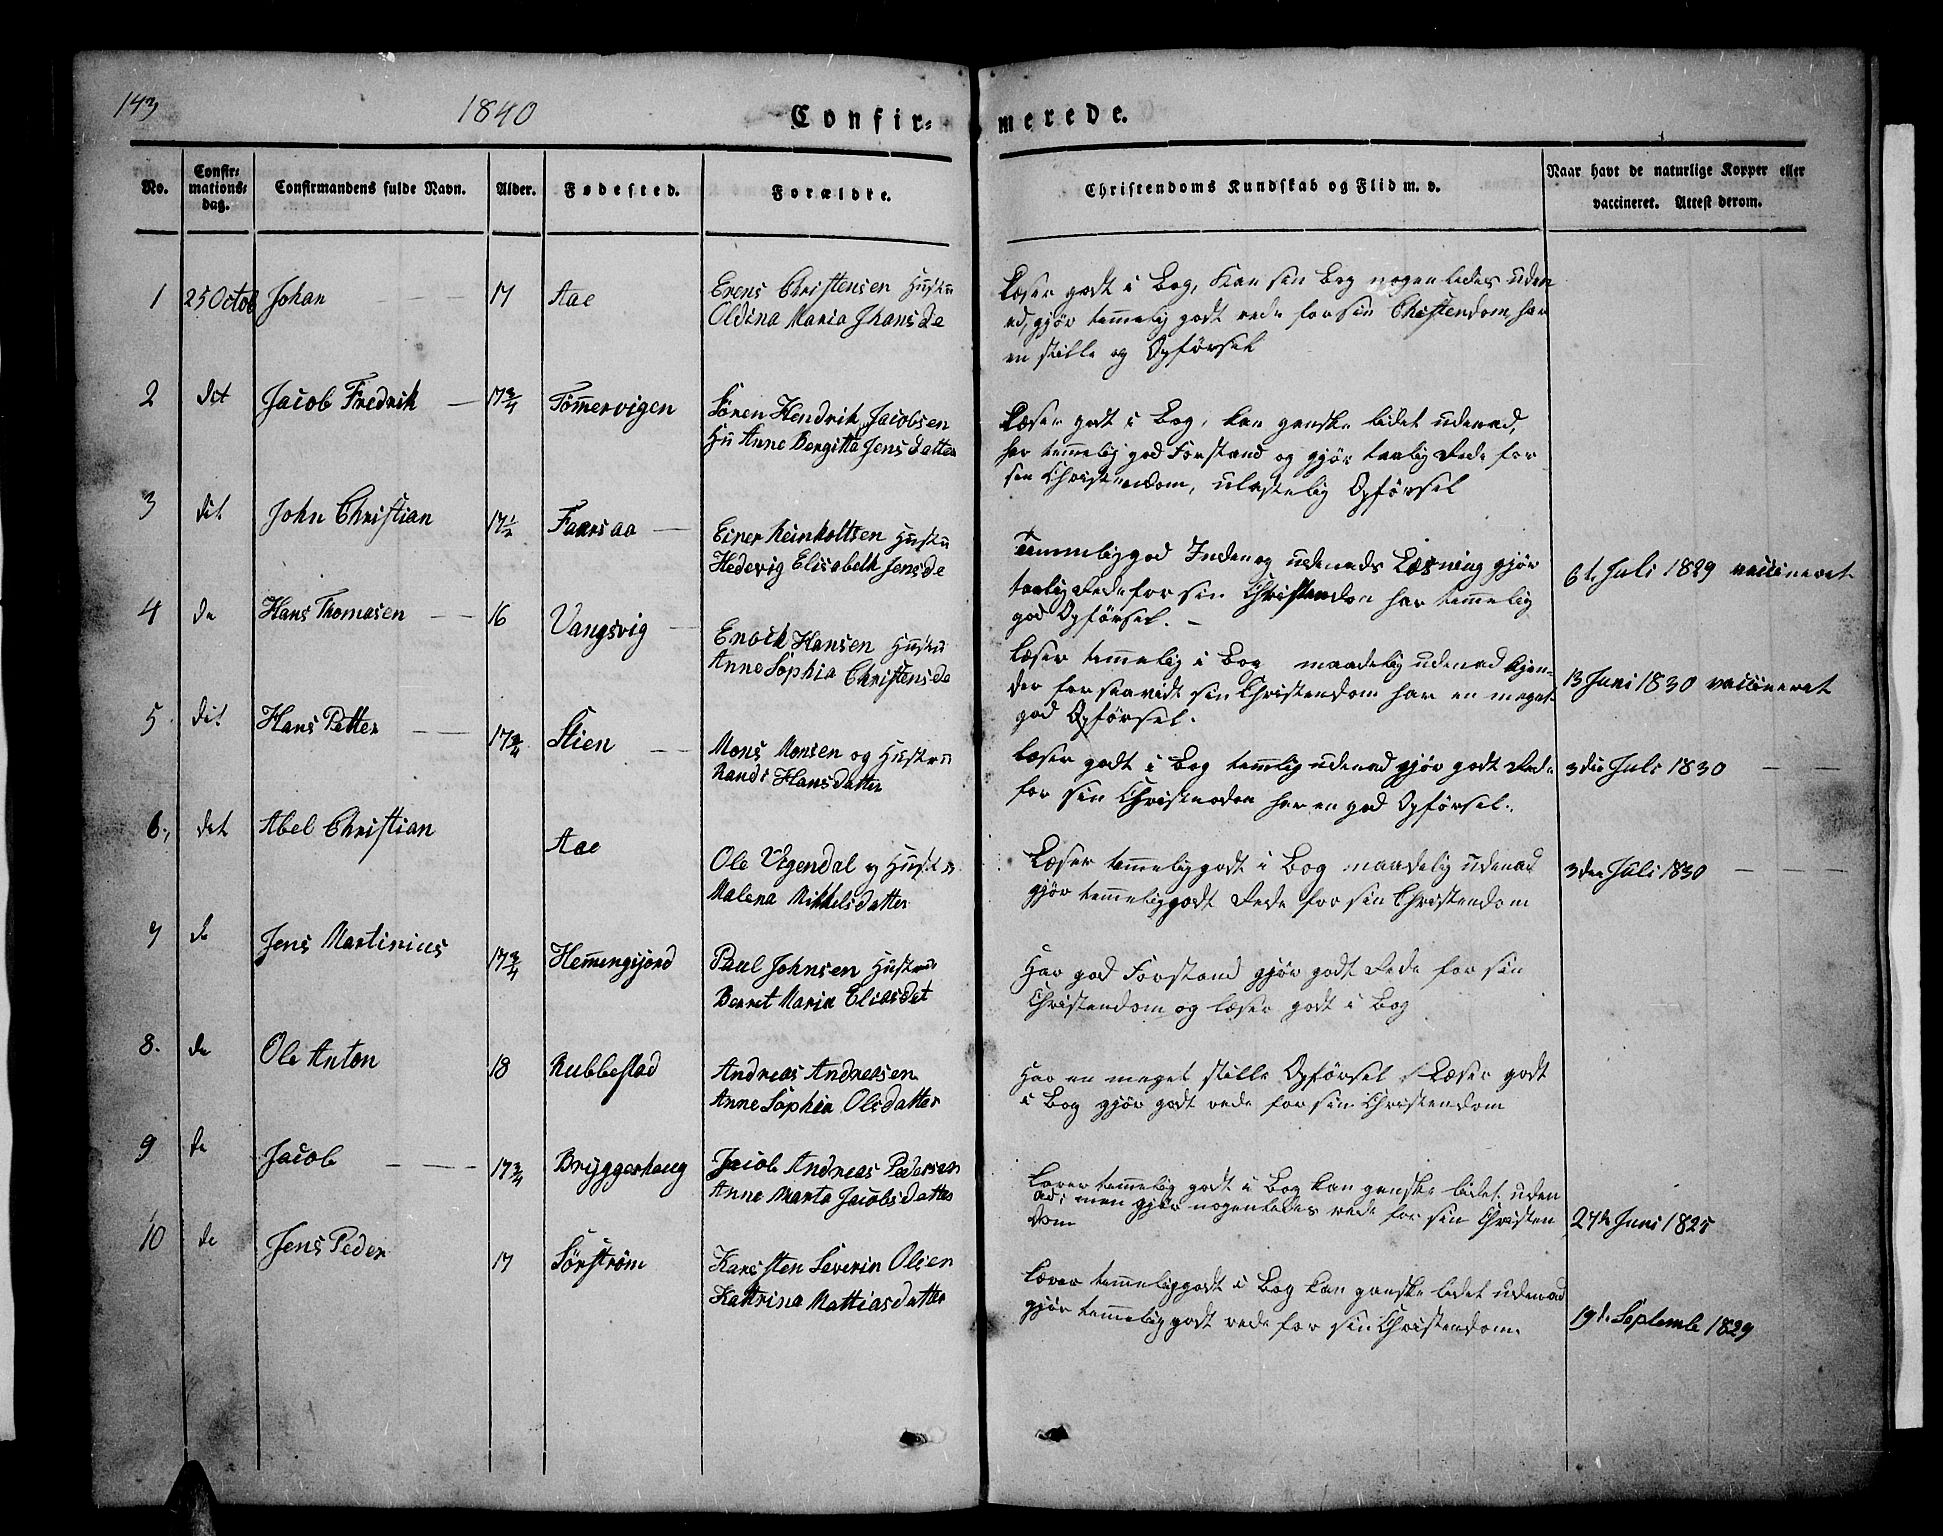 143
1840
Confir- merede.
No.
Confir-
mations-
dag.
Confirmandens fulde Navn.
Alder.
Fødested.
Forældre.
Christendoms Kundskab og Flid m. v.
Naar havt de naturlige Kopper eller
vaccineret. Attest derom.
1 25 Octob Johan 17 Aae
Erens Christensen Hustru
Oldina Maria Jhansde
Læser godt i Bog, kan sin Bog nogenledes uden
ad, gjør temmelig godt rede for sin Christendom, har
en stille og Opførsel
2 det Jacob Fredrik 17 3/4 Tömmervigen
Sören Hendrik Jacobsen
Hu Anne Bergitta Jens datter
Læser godt i Bog, kan ganske lidet udenad,
har temmelig god Forstand og gjør taalig Rede for
sin Christendom, ulastelig Opførsel
3 dit John Christian 17 1/2 Faarsaa
Einer Reinholtsen Hustru
Hedevig Elisabeth Jensde
Temmelig god Inden og udenads Læsning gjør
taalig Rede for sin Christendom har temmelig
god Opførsel.
6t Juli 1829 vaccineret
4 de Hans Thomasen 16 Vangsvig
Enoch Hansen Hustru
Anne Sophia Christensde
Læser temmelig i Bog maadelig udenad kjen-
der forsaavidt sin Christendom har en meget
god Opførsel.
13 Juni 1830 vaccineret
5. dit Hans Petter 17 3/4 Stien
Mons Monsen og Hustru
Randi Hansdatter
Læser godt i Bog temmelig udenad gjør godt Rede
for sin Christendom har en god Opførsel.
3die Juli 1830
6., det Abel Christian Aae
Ole Vigendal og Hustru
Malena Mikkelsdatter
Læser temmelig godt i Bog maadelig udenad
gjør temmelig godt Rede for sin Christendom
3die Juli 1830
7 de Jens Martinius 17 3/4 Hemmingsjord
Paul Johnsen Hustrue
Berret Maria Eliasdet
Har god Forstand gjør godt Rede for sin
Christendom og læser godt i Bog
8. de Ole Anton 18 Rubbestad
Andreas Andreasen
Anne Sophia Olsdatter
Har en meget stille Opførsel Læser godt
i Bog gjør godt rede for sin Christendom
9 de Jacob 17 3/4 Bryggerhaug
Jacob Andreas Pedersen
Anne Marta Jacobsdatter
Læser temmelig godt i Bog kan ganske lidet uden
ad; men gjør nogenledes rede for sin Christen
dom
27de Juni 1825
10 de Jens Peder 17 Sörström
Karsten Severin Olsen
Kattrina Mattiasdatter
Læser temmelig godt i Bog kan ganske lidet udenad
gjør temmelig godt rede for sin Christendom.
19de Septembe 1829